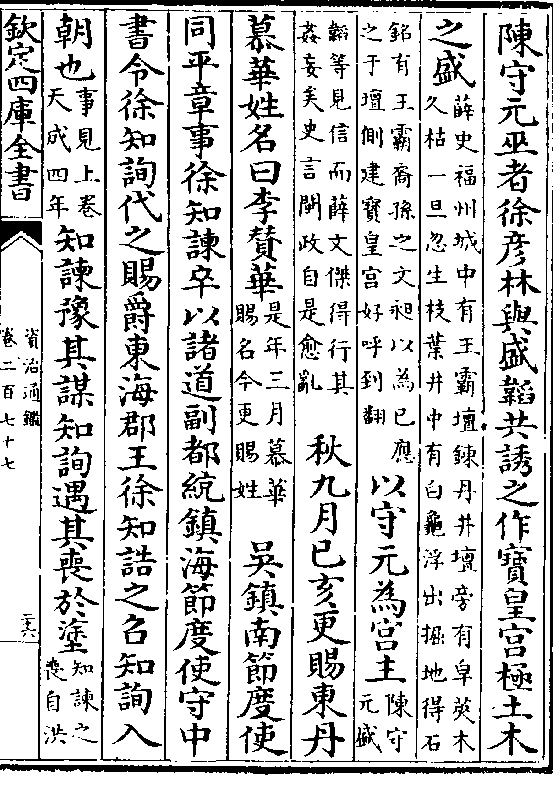 陳守元巫者徐彦林與盛韜共誘之作寶皇宫極土木
之盛薛史福州城中有王霸壇鍊丹井壇旁有皁莢木
久枯一旦忽生枝葉井中有白龜浮出掘地得石
銘有王霸裔孫之文昶以為已應
之于壇側建寶皇宫以守元為宫主陳守
元盛
韜等見信而薛文傑得行其
姦妄矣史言閩政自是愈亂秋九月己亥更賜東丹
慕華姓名曰李贊華是年三月慕華
賜名今更賜姓吳鎮南節度使
同平章事徐知諫卒以諸道副都統鎮海節度使守中
書令徐知詢代之賜爵東海郡王徐知誥之召知詢入
朝也事見上卷
天成四年知諫豫其謀知詢遇其喪於塗知諫之
喪自洪
欽定四庫全書
資治通鑑
卷二百七十七